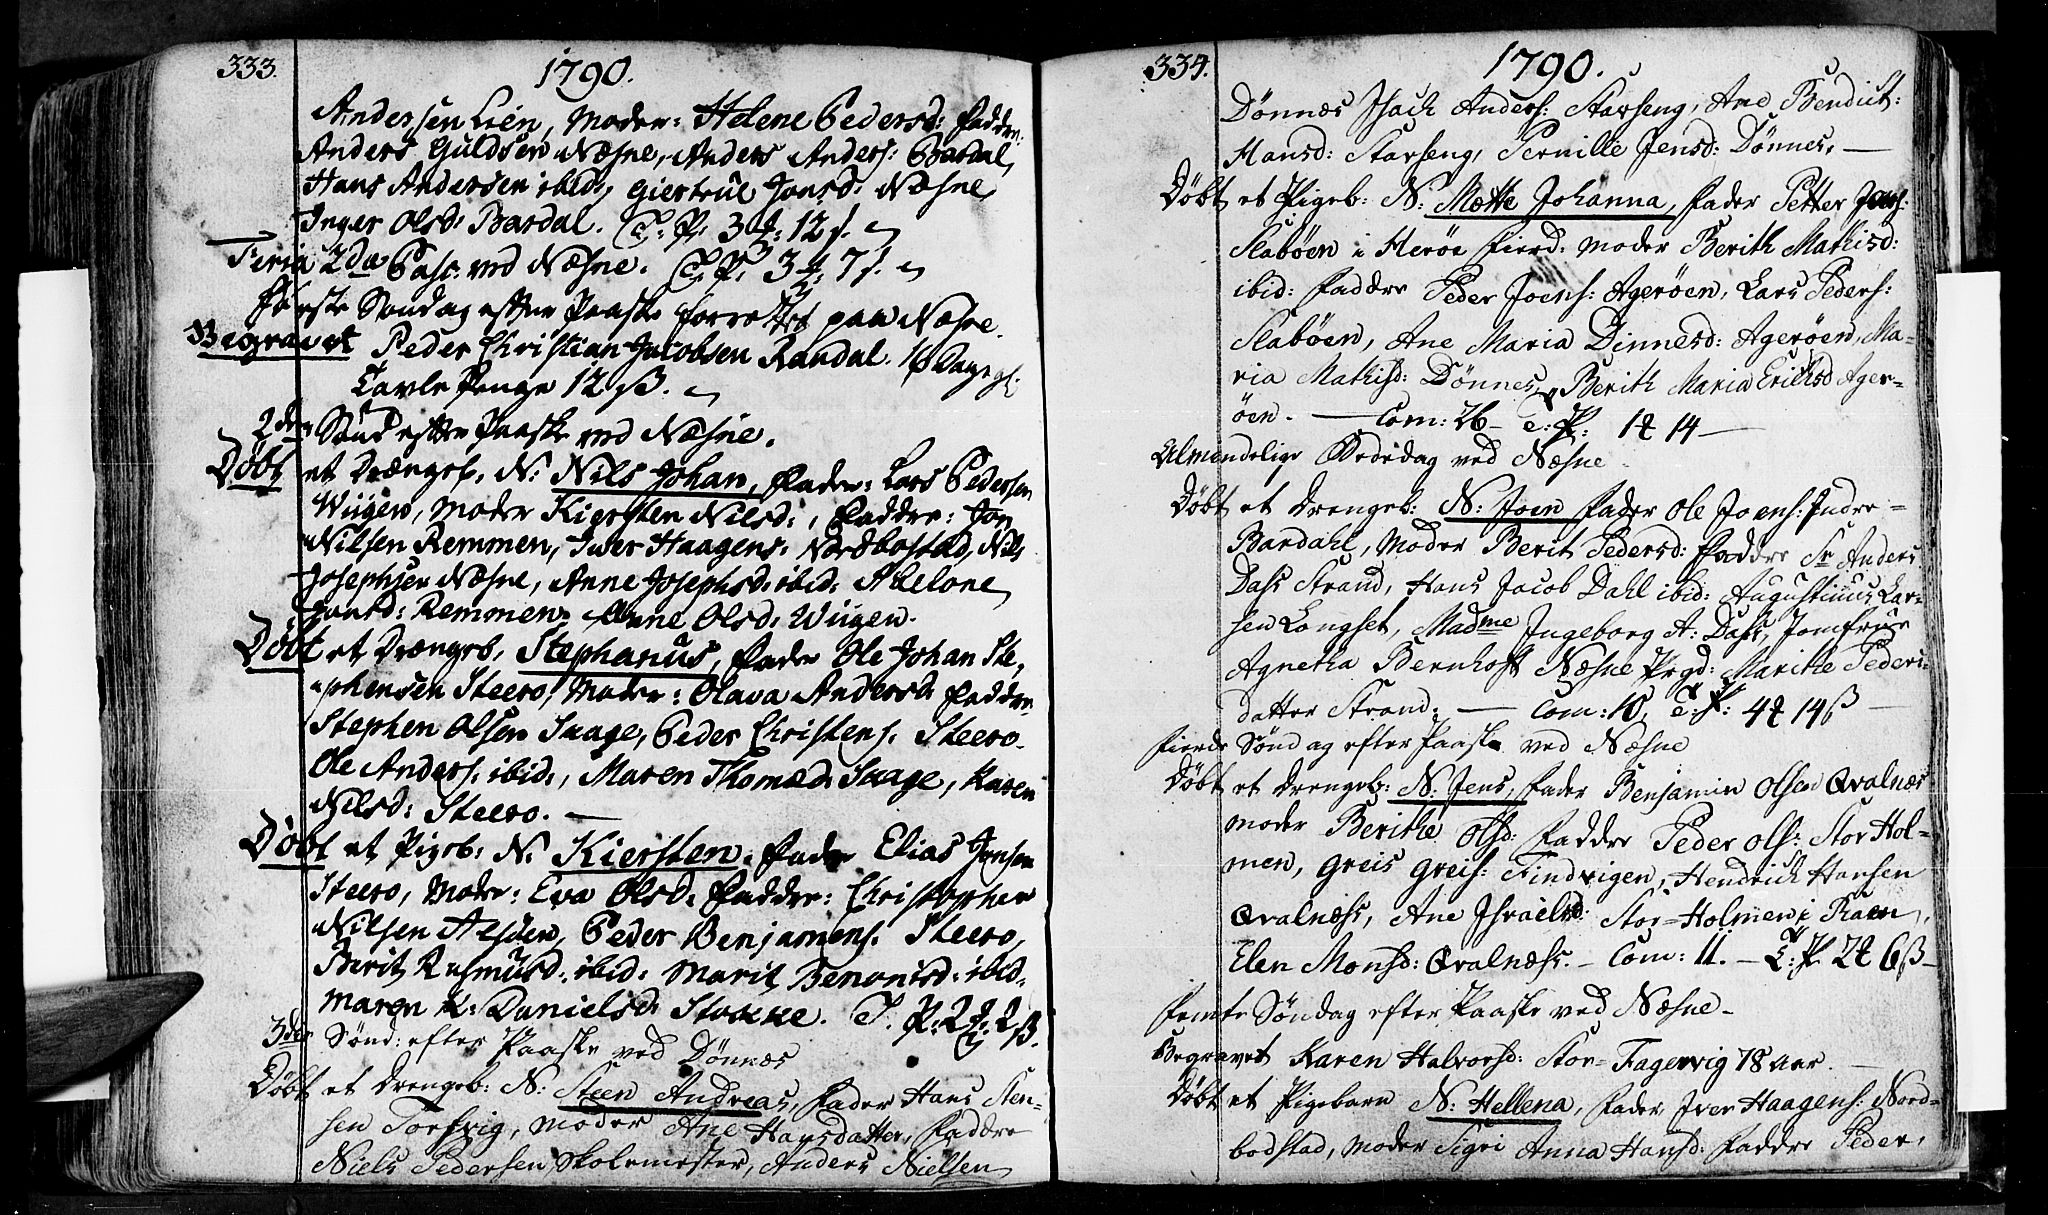 333.
1790.
Andersen Lien, Moder: Helene Pedersd: Faddre:
Anders Guldsen Næsne, Anders Anders: Bardal,
Hans Andersen ibid, Giertrul Jonsd: Næsne
Inger Olsd: Bardal. T. P. 3 12 s.
Feria 2da Pasc: ved Næsne. T. P. 3 7 s.
første Søndag efter Paaske forrettet paa Næsne.
Begravet Peder Christian Jacobsen Randal. 16 Dage gl:
Tavle Penge 12 ß.
2den Sønd efter Paaske ved Næsne.
Døbt et Drængeb. N: Nils Johan, Fader: Lars Pedersen
Wiigen, Moder Kiersten Nilsd:, Faddre: Jon
Nilsen Remmen, Iver Haagens: Nordbostad, Nils
Josephsen Næsne, Anne Josephsd: ibid: Abelone
Remmen, Anne Olsd: Wiigen.
Døbt et Drængeb. Stephanus, Fader Ole Johan Ste-
phensen Steero, Moder: Olava Andersd: Faddre
Stephen Olsen Saage, Peder Christens. Steero.
Ole Anders: ibid:, Maren Thomæd: Saage, Karen
Nilsd: Steero. —
Døbt et Pigeb: N. Kiersten. Fader Elias Jonsen
Steero, Moder: Eva Olsd. Faddre: Christopher
Nilsen, Peder Benjamens. Steero,
Berit Rasmusd: ibid: Marit Benonisd: ibid.
Maren K: Danielsd: Stokke. T. P: 2 2 ß.
3die Sønd: efter Paaske ved Dønnæs
Døbt et drengeb: N: Steen Andreas, Fader Hans Sten-
sen Torfvig, Moder Ane Hansdatter, Faddre
Niels Pedersen Skolemester, Anders Nielsen
334.
1790.
Dønnæs Isach Anders: Starseng, Ane Bendict:
Hansd: Starseng, Pernille Jensd: Dønnes, —
Døbt et Pigeb: N: Mætte Johanna, Fader Petter Joens:
Slabøen i Herøe Fierd: Moder Berith Mathisd:
ibid: Faddre Peder Joens: Agerøen, Lars Peders:
Slabøen, Ane Maria Dinnesd: Agerøen, Ma-
ria Mathisd: Dønnes, Berith Maria Erichsd Ager-
øen. — Com: 26 — T: P: 1 14 —
Almindelige Bededag ved Næsne.
Døbt et Drengeb: N: Joen Fader Ole Joens: Indre-
Bardahl, Moder Berit Pedersd: Faddre Sr Anders
Dass Strand, Hans Jacob Dahl ibid: Augustinus Lar-
sen Longset, Madme Ingeborg A: Dass, Jomfrue
Agnetha Bernhoft Næsne Prgd: Marithe Peders-
datter Strand: — Com: 10, T: P: 4 14 ß —
Fierde Søndag efter Paaske ved Næsne
Døbt et drengeb: N: Jens, Fader Benjamin Olsen Qvalnæs
Moder Berithe Olsd: Faddre Peder Ols: Stor Hol-
men, Greis Greis: Findvigen, Hendrich Hansen
Qvalnæss, Ane Israelsd: Stor-Holmen i Ranen,
Elen Monsd: Qvalnæss. — Com: 11. — T: P 2 6 ß —
Femte Søndag efter Paaske ved Næsne —
Begravet Karen Halvorsd: Stor-Fagervig 78 aar. —
Døbt et Pigebarn N: Hellena, Fader Iver Haagens: Nord-
bodstad, Moder Sigri Anna Hansd: Faddre Peder